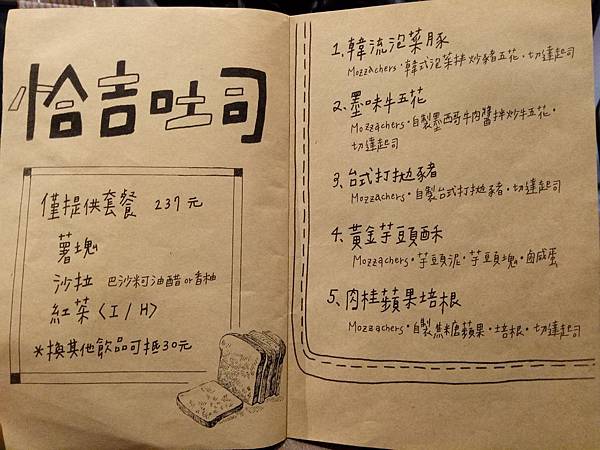 恰吉吐司
僅提供套餐 237元
薯塊
沙拉 巴沙米可油醋or香柚
紅茶〈I/H〉
*換其他飲品可抵30元
1.韓流泡菜豚
Mozzachers·韓式泡菜拌炒豬五花·切達起司
2.墨味牛五花
Mozzachers·自製墨西哥牛肉醬拌炒牛五花·
切達起司
3.台式打拋豬
Mozzachers·自製台式打拋豬·切達起司
4.黃金芋頭酥
Mozzachers·芋頭泥·芋頭塊·鹵咸蛋
5.肉桂蘋果培根
Mozzachers·自製焦糖蘋果·培根·切達起司